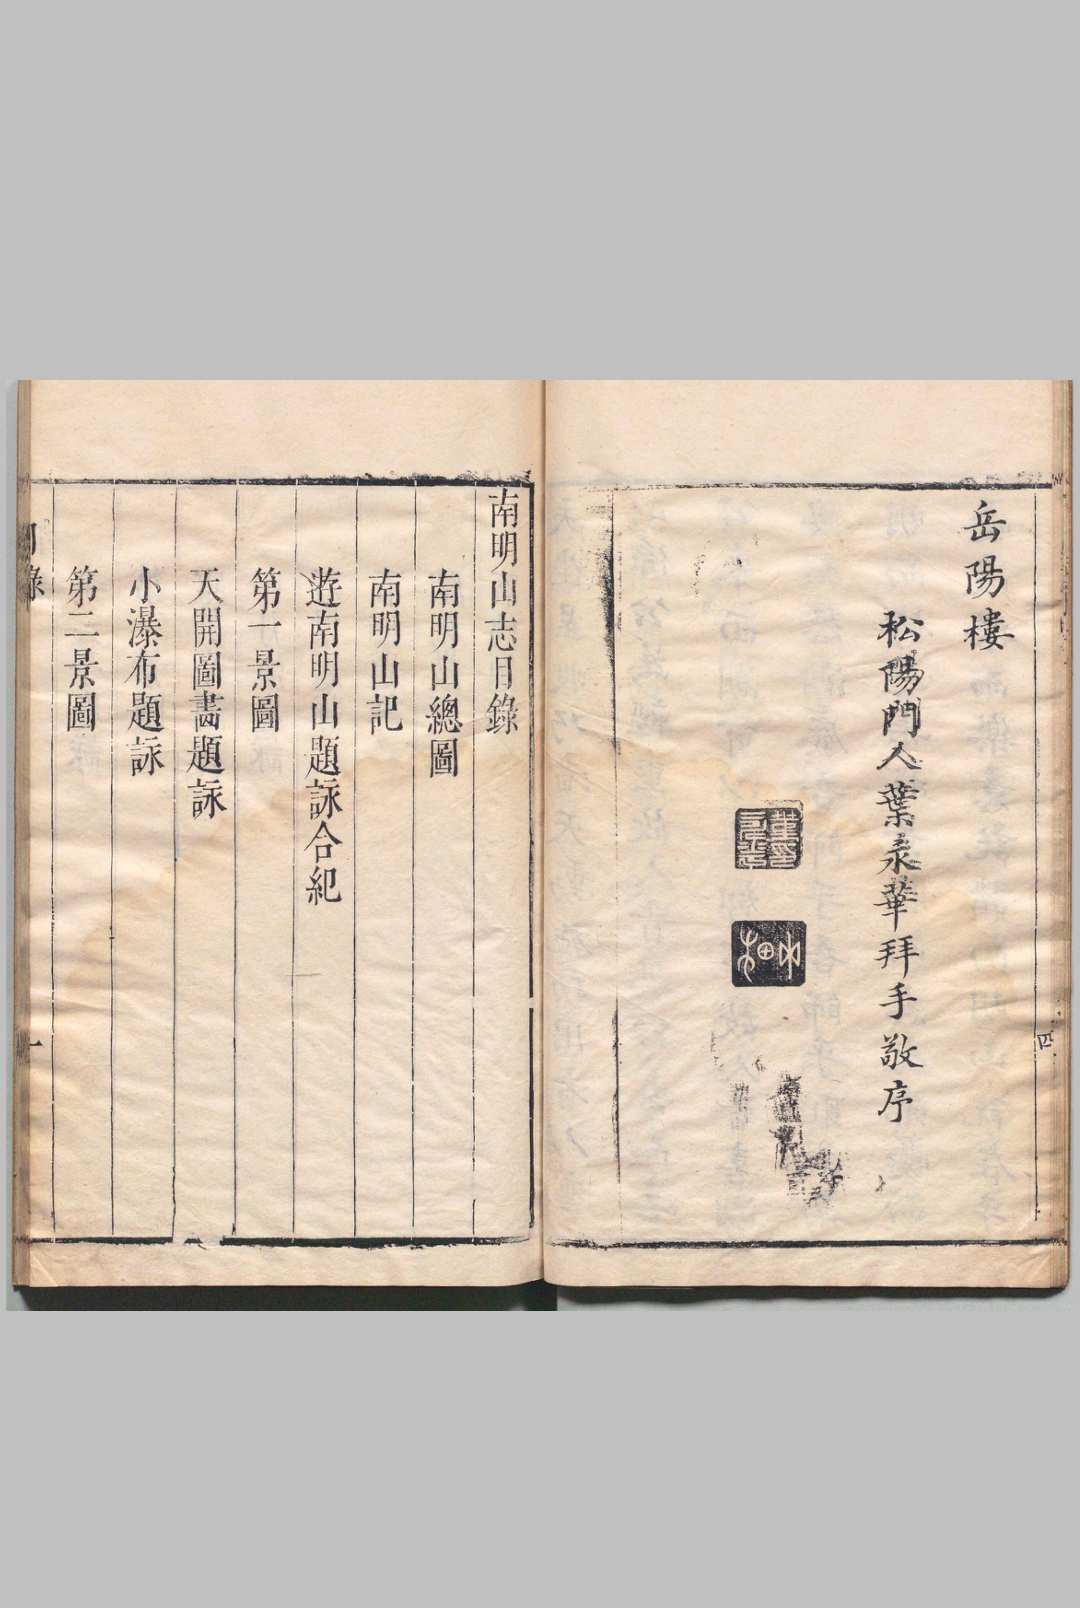 岳陽樓
松陽門人葉永華拜手敬序
四
南明山志目錄
南明山總圖
南明山記
遊南明山題詠合紀
第一景圖
天開圖畵題詠
小瀑布題詠
第二景圖
目錄
一